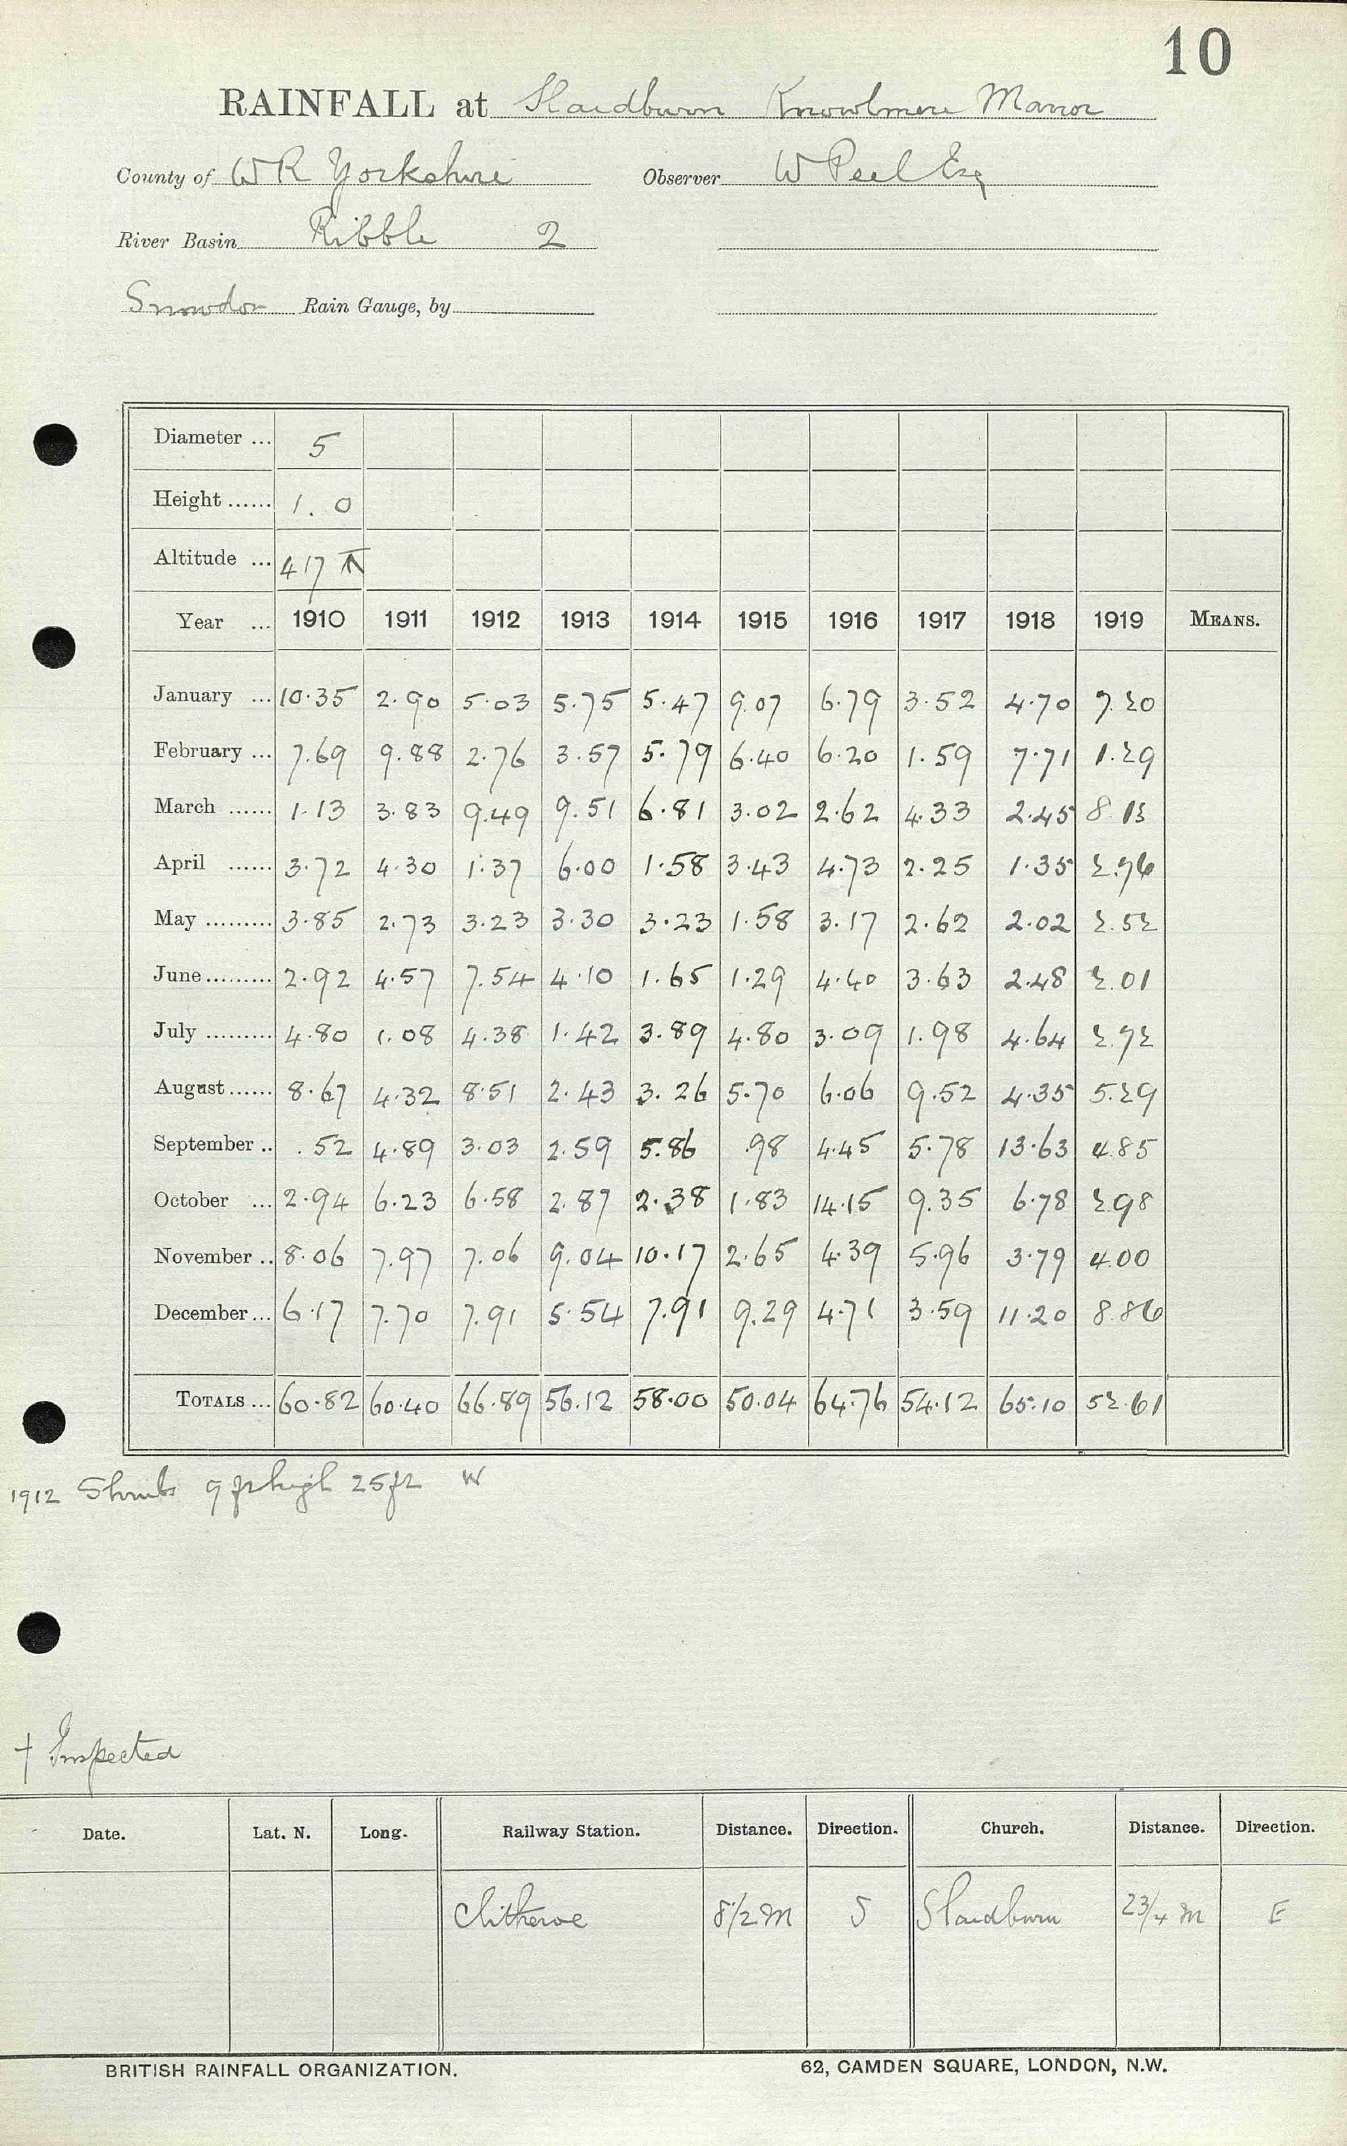 10
RAINFALL at Slaidburn Knowlmere Manor
County of WR Yorkshire Observer W Peel Esq
River Basin Ribble 2
Snowdon Rain Gauge, by
Diameter ... 5
Height ...... 1. 0
Altitude ... 417
Year ... 1910 1911 1912 1913 1914 1915 1916 1917 1918 1919 MEANS.
January ... 10.35 2.90 5.03 5.75 5.47 9.07 6.79 3.52 4.70 7.20
February ... 7.69 9.88 2.76 3.57 5.79 6.40 6.20 1.59 7.71 1.29
March ...... 1.13 3.83 9.49 9.51 6.81 3.02 2.62 4.33 2.45 8.13
April ...... 3.72 4.30 1.37 6.00 1.58 3.43 4.73 2.25 1.35 2.76
May ......... 3.85 2.73 3.23 3.30 3.23 1.58 3.17 2.62 2.02 2.52
June ......... 2.92 4.57 7.54 4.10 1.65 1.29 4.40 3.63 2.48 2.01
July ......... 4.80 1.08 4.38 1.42 3.89 4.80 3.09 1.98 4.64 2.72
August ...... 8.67 4.32 8.51 2.43 3.26 5.70 6.06 9.52 4.35 5.29
September .. .52 4.89 3.03 2.59 5.86 .98 4.45 5.78 13.63 4.85
October ... 2.94 6.23 6.58 2.87 2.38 1.83 14.15 9.35 6.78 2.98
November .. 8.06 7.97 7.06 9.04 10.17 2.65 4.39 5.96 3.79 4.00
December ... 6.17 7.70 7.91 5.54 7.91 9.29 4.71 3.59 11.20 8.86
TOTALS ... 60.82 60.40 66.89 56.12 58.00 50.04 64.76 54.12 65.10 52.61
1912 Shrubs 9 ft high 25 ft W
† Inspected
Date. Lat. N. Long. Railway Station. Distance. Direction. Church. Distance. Direction.
Clitheroe 8 1/2 M S Slaidburn 2 3/4 M E
BRITISH RAINFALL ORGANIZATION. 62, CAMDEN SQUARE, LONDON, N.W.